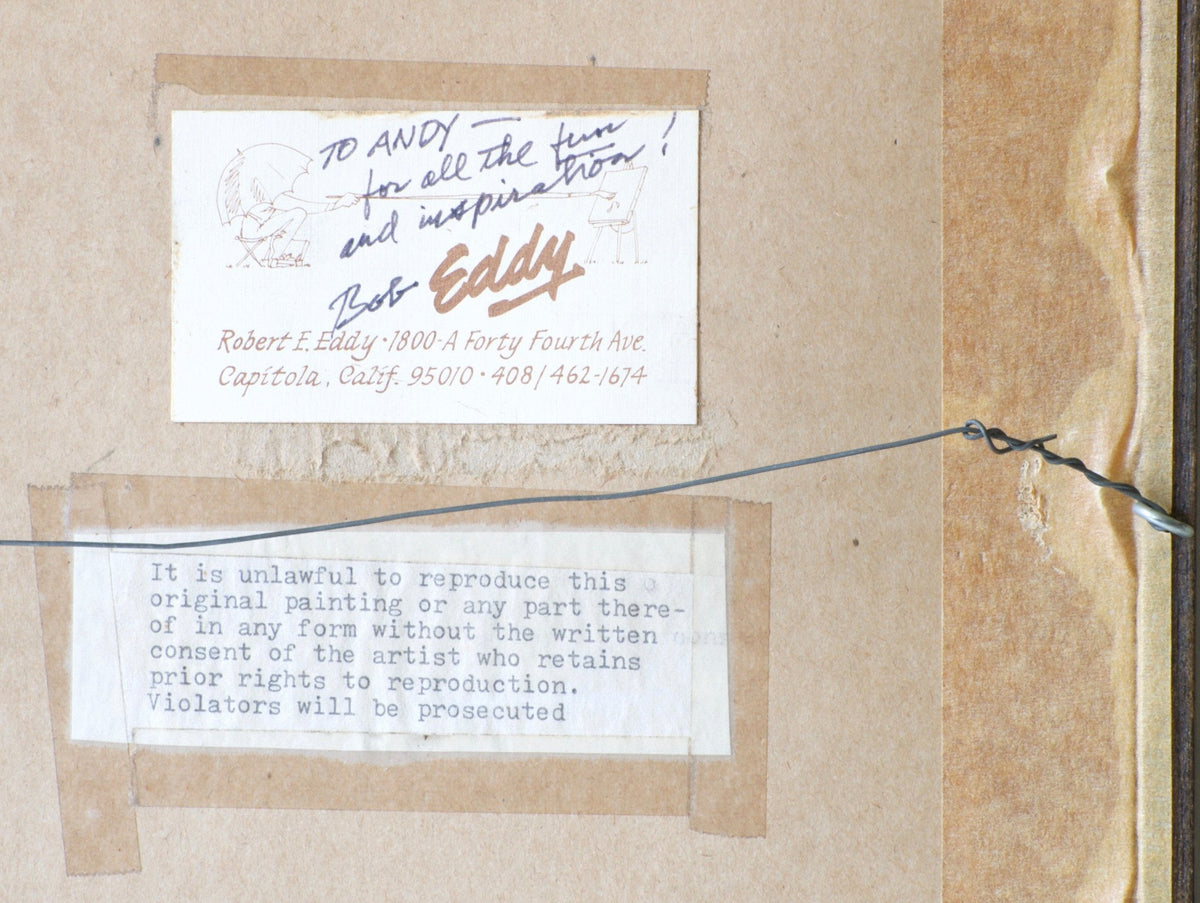 TO ANDY —
for all the fun
and inspiration!
Bob Eddy
Robert F. Eddy · 1800-A Forty Fourth Ave.
Capitola, Calif. 95010 · 408/462-1674
It is unlawful to reproduce this
original painting or any part there-
of in any form without the written
consent of the artist who retains
prior rights to reproduction.
Violators will be prosecuted